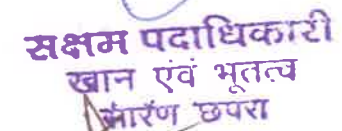 सक्षम पदाधिकारी
खान एवं भूतत्व
सारण छपरा